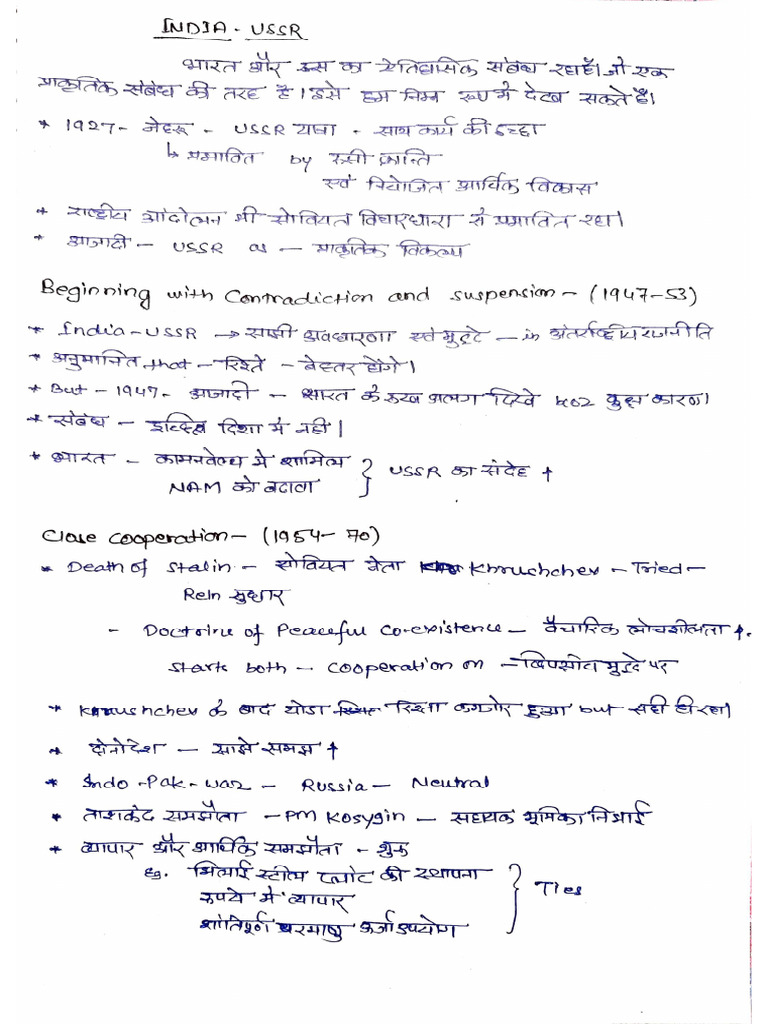 INDIA - USSR
भारत और रूस का ऐतिहासिक संबंध रहा है। जो एक
प्राकृतिक संबंध की तरह है। इसे हम निम्न रूप में देख सकते हैं।
* 1927 - नेहरू - USSR यात्रा - साथ कार्य की इच्छा
↳ प्रभावित by रूसी क्रान्ति
एवं नियोजित आर्थिक विकास
* राष्ट्रीय आंदोलन भी सोवियत विचारधारा से प्रभावित रहा।
* आजादी - USSR as - प्राकृतिक विकल्प
Beginning with Contradiction and suspension - (1947-53)
* India-USSR → साझी अवधारणा एवं मुद्दे - in अंतर्राष्ट्रीय राजनीति
* अनुमानित that - रिश्ते - बेहतर होंगे।
* But - 1947 - आजादी - भारत के रुख अलग दिखे for कुछ कारण।
* संबंध - इच्छित दिशा में नहीं।
* भारत - कामनवेल्थ में शामिल } USSR का संदेह ↑
NAM को बढावा
Close cooperation - (1954-70)
* Death of Stalin - सोवियत नेता Khrushchev - Tried -
Reln सुधार
- Doctrine of Peaceful co-existence - वैचारिक लोचशीलता ↑.
starts both - cooperation on - विपक्षीय मुद्दे पर
* Khrushchev के बाद थोडा रिश्ता कमजोर हुआ but सही ही रहा।
* दोनो देश - साझे समझ ↑
* Indo-Pak-war - Russia - Neutral
* ताशकंद समझौता - PM Kosygin - सहायक भूमिका निभाई
* व्यापार और आर्थिक समझौता - शुरू
Eg. भिलाई स्टील प्लांट की स्थापना
रुपये में व्यापार } Ties
शांतिपूर्ण परमाणु ऊर्जा उपयोग